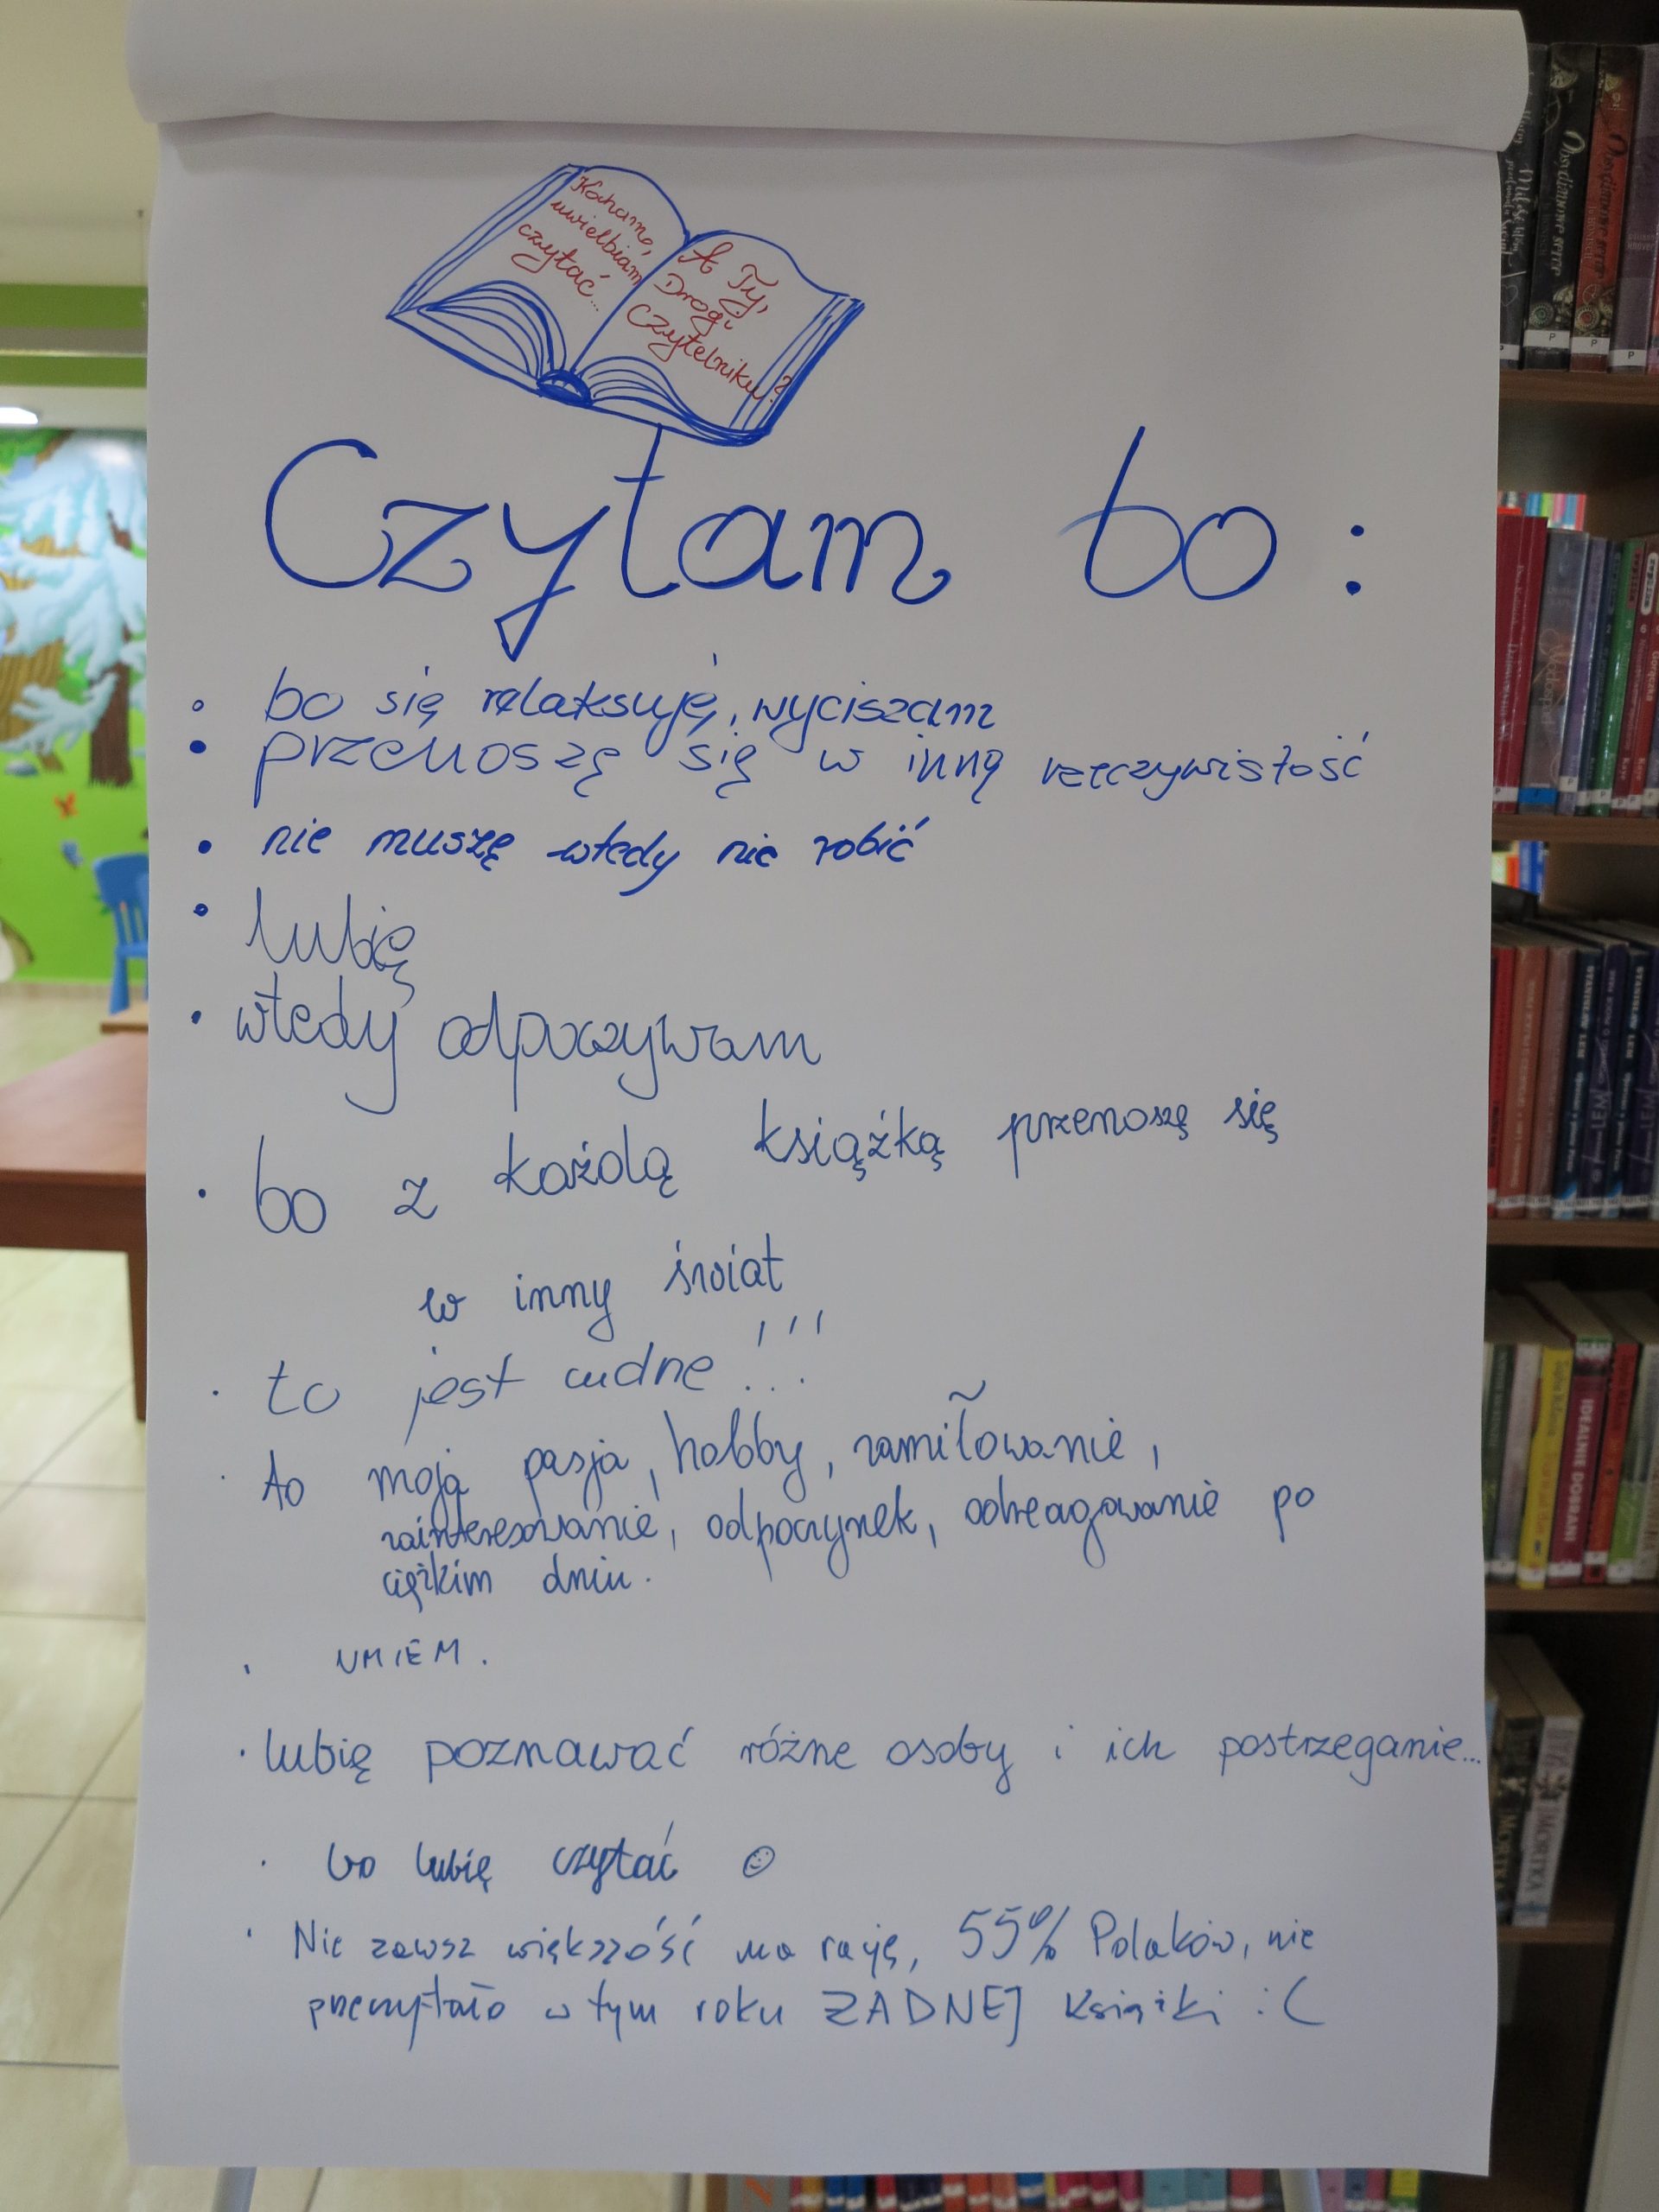 Kocham,
uwielbiam
czytać...
A Ty,
Drogi
Czytelniku?
Czytam bo:
• bo się relaksuję, wyciszam
• przenoszę się w inną rzeczywistość
• nie muszę wtedy nic robić
• lubię
• wtedy odpoczywam
• bo z każdą książką przenoszę się
w inny świat
• to jest cudne!!!
• to moja pasja, hobby, zamiłowanie,
zainteresowanie, odpoczynek, odreagowanie po
ciężkim dniu.
• UMIEM.
• lubię poznawać różne osoby i ich postrzeganie...
• bo lubię czytać ☺
• Nie zawsz większość ma rację, 55% Polaków, nie
przeczytało w tym roku ŻADNEJ książki :(
IDEALNIE DOBRANI
STANISŁAW LEM
LEM
STANISŁAW LEM
LEM